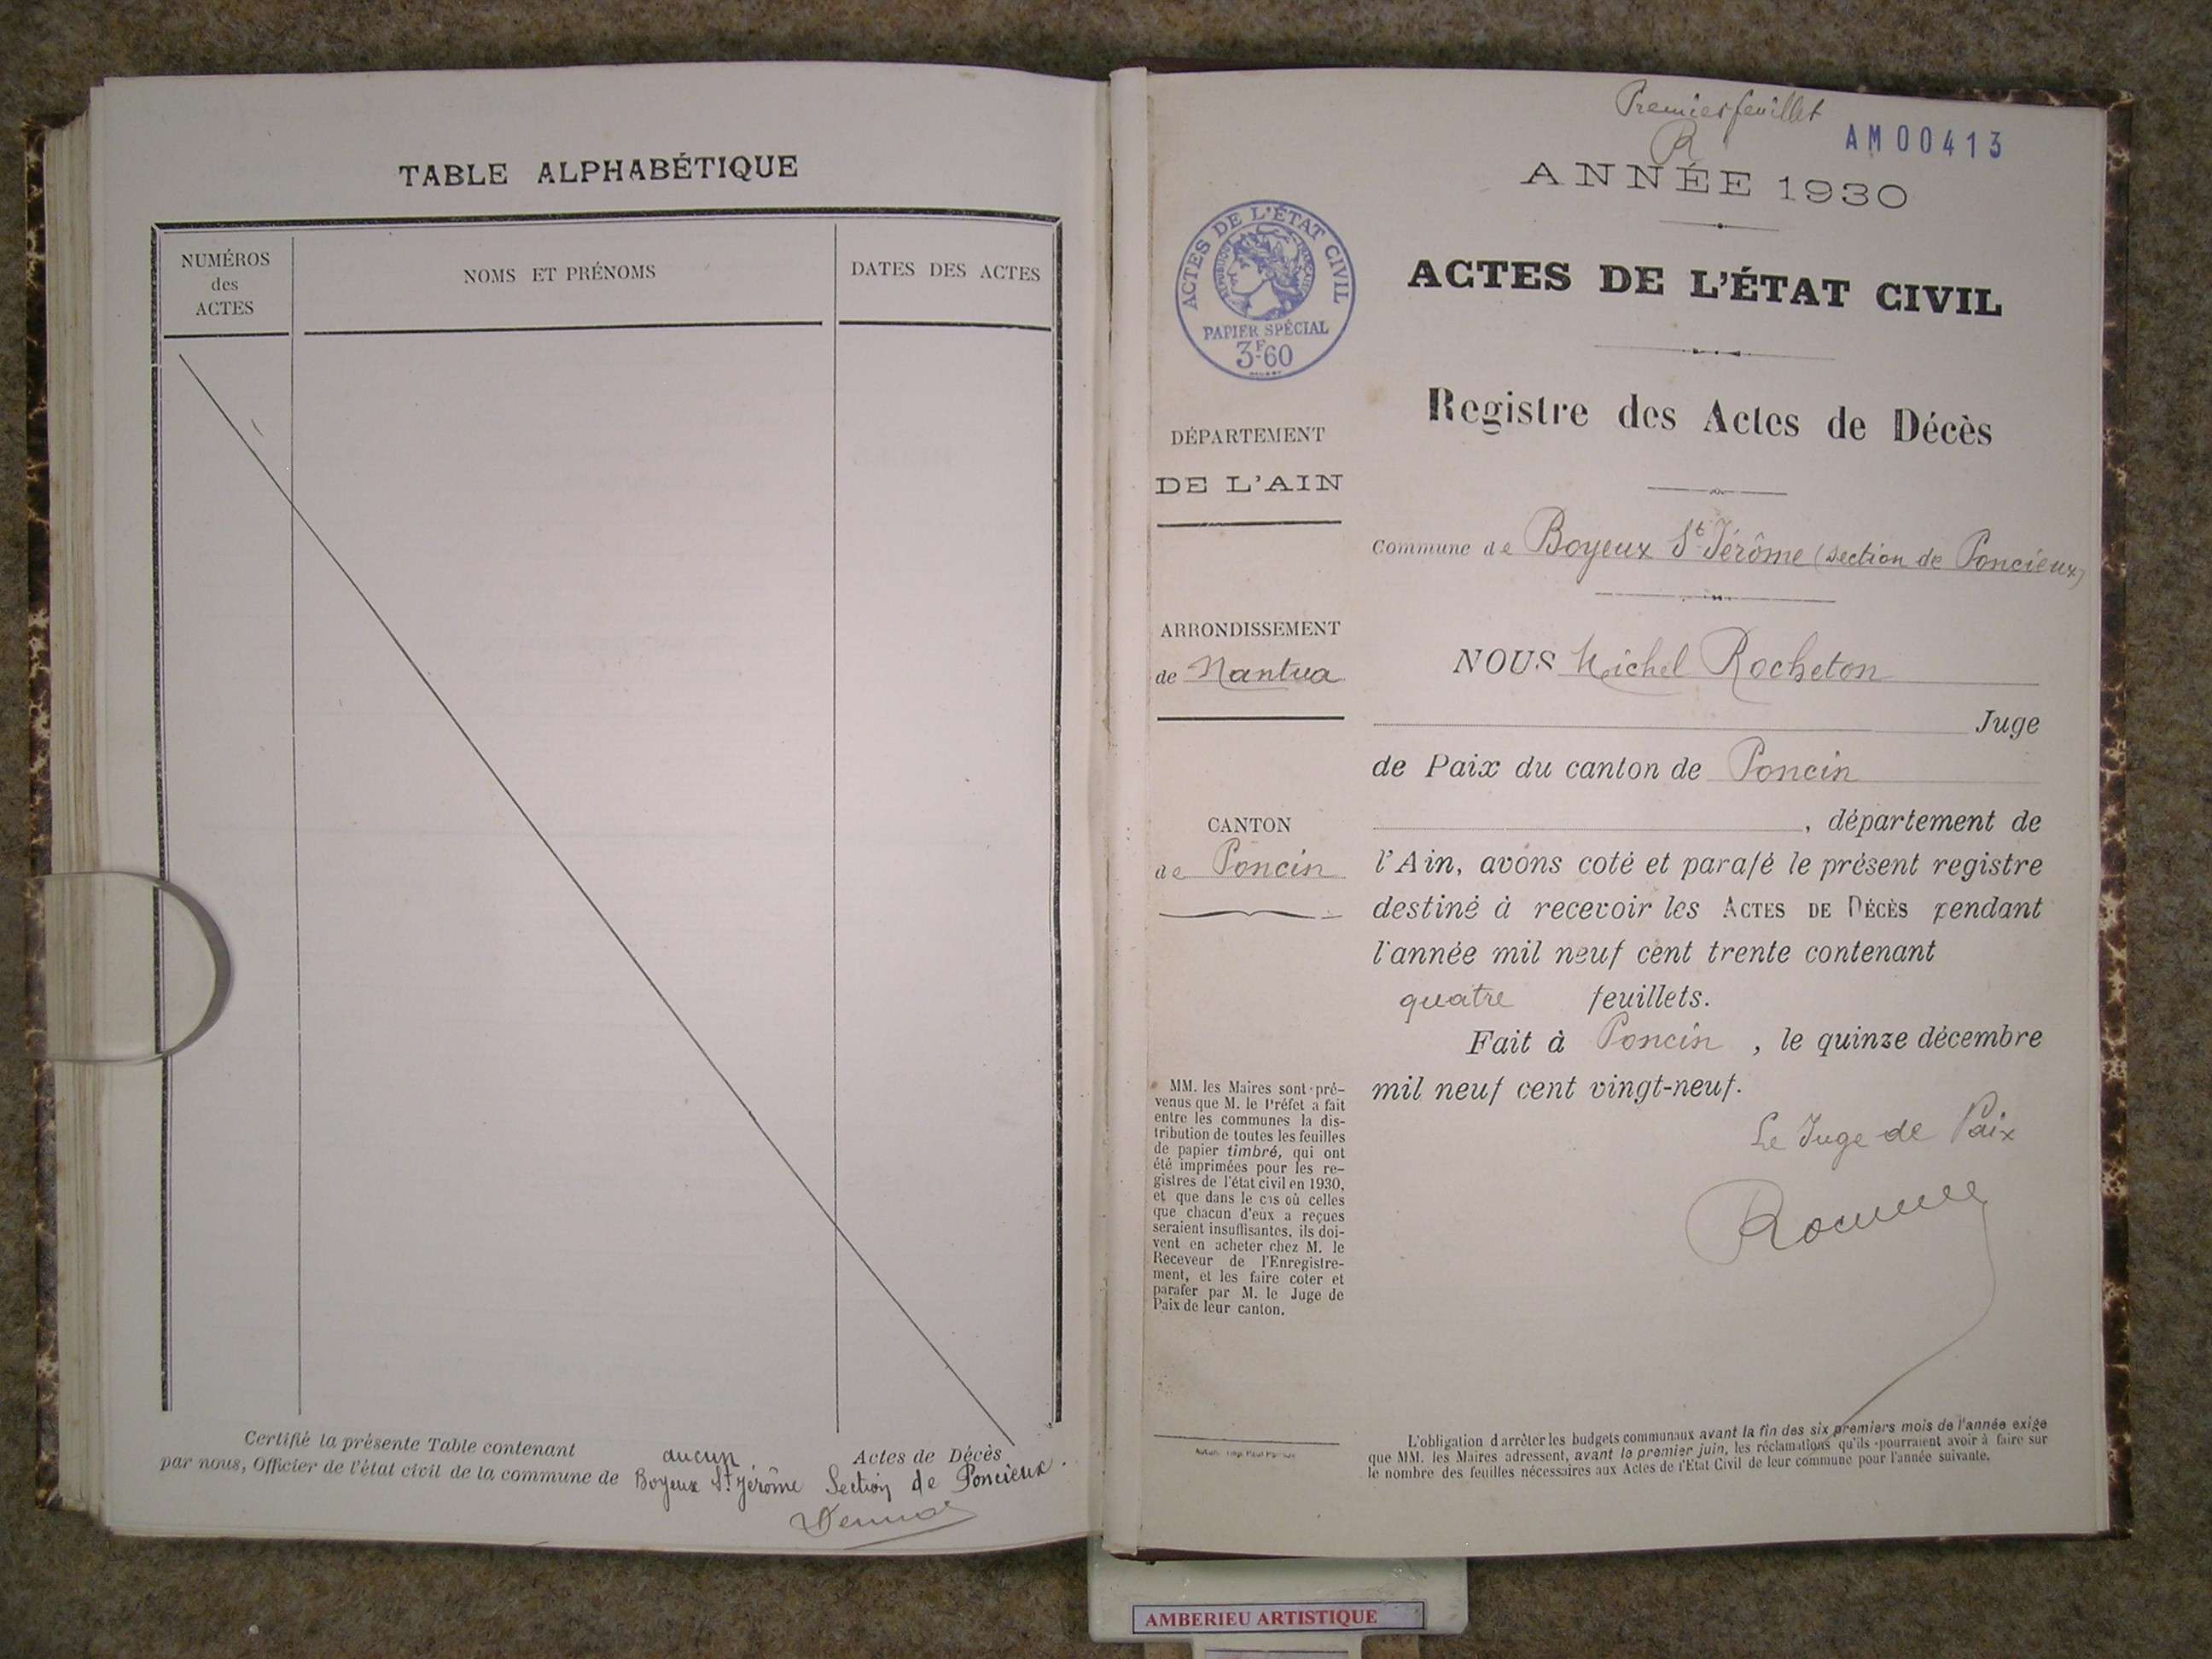 TABLE ALPHABÉTIQUE
NUMÉROS
des
ACTES
NOMS ET PRÉNOMS
DATES DES ACTES
Certifié la présente Table contenant aucun Actes de Décès
par nous, Officier de l'état civil de la commune de Boyeux St Jérôme Section de Poncieux.
Premier feuillet
R
AM00413
ANNÉE 1930
ACTES DE L'ÉTAT CIVIL
RÉPUBLIQUE FRANÇAISE
PAPIER SPÉCIAL
3F60
ACTES DE L'ÉTAT CIVIL
Registre des Actes de Décès
DÉPARTEMENT
DE L'AIN
Commune de Boyeux St Jérôme (section de Poncieux)
ARRONDISSEMENT
de Nantua
CANTON
de Poncin
NOUS Michel Rocheton
Juge
de Paix du canton de Poncin
, département de
l'Ain, avons coté et parafé le présent registre
destiné à recevoir les ACTES DE DÉCÈS pendant
l'année mil neuf cent trente contenant
quatre feuillets.
Fait à Poncin, le quinze décembre
mil neuf cent vingt-neuf.
Le Juge de Paix
MM. les Maires sont pré-
venus que M. le Préfet a fait
entre les communes la dis-
tribution de toutes les feuilles
de papier timbré, qui ont
été imprimées pour les re-
gistres de l'état civil en 1930,
et que dans le cas où celles
que chacun d'eux a reçues
seraient insuffisantes, ils doi-
vent en acheter chez M. le
Receveur de l'Enregistre-
ment, et les faire coter et
parafer par M. le Juge de
Paix de leur canton.
L'obligation d'arrêter les budgets communaux avant la fin des six premiers mois de l'année exige
que MM. les Maires adressent, avant le premier juin, les réclamations qu'ils pourraient avoir à faire sur
le nombre des feuilles nécessaires aux Actes de l'Etat Civil de leur commune pour l'année suivante.
AMBERIEU ARTISTIQUE